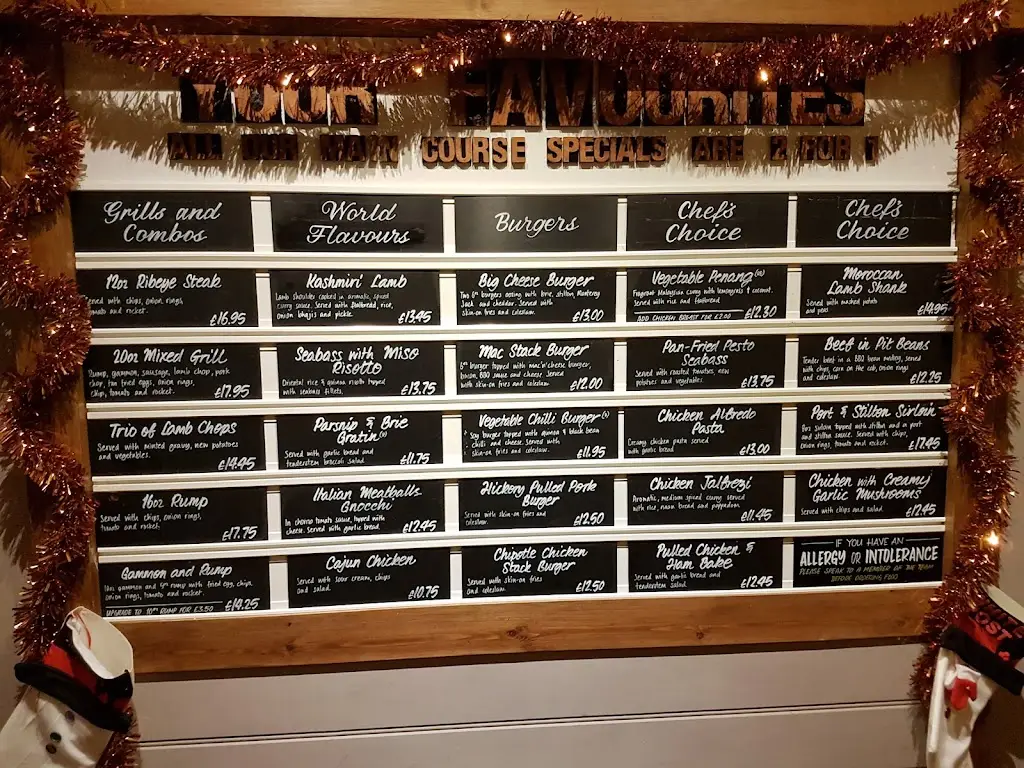 YOUR FAVOURITES
ALL OUR MAIN COURSE SPECIALS ARE 2 FOR 1
Grills and
Combos
12oz Ribeye Steak
Served with chips, onion rings,
tomato and rocket.
£16.95
20oz Mixed Grill
Rump, gammon, sausage, lamb chop, pork
chop, two fried eggs, onion rings,
chips, tomato and rocket.
£17.95
Trio of Lamb Chops
Served with minted gravy, new potatoes
and vegetables.
£14.45
16oz Rump
Served with chips, onion rings,
tomato and rocket.
£17.75
Gammon and Rump
10oz gammon and rump with fried egg, chips,
onion rings, tomato and rocket.
£14.25
UPGRADE TO 10oz RUMP FOR £3.50
World
Flavours
Kashmiri Lamb
Lamb shoulder cooked in aromatic, spiced
curry sauce. Served with rice,
onion bhajis and pickle.
£13.45
Seabass with Miso
Risotto
Oriental rice & quinoa risotto topped
with seabass fillets.
£13.75
Parsnip & Brie
Gratin (v)
Served with garlic bread and
tenderstem broccoli salad.
£11.75
Italian Meatballs
Gnocchi
In chorizo tomato sauce, topped with
cheese. Served with garlic bread.
£12.45
Cajun Chicken
Served with sour cream, chips
and salad.
£10.75
Burgers
Big Cheese Burger
Two 6oz burgers oozing with brie, stilton, Monterey
Jack and cheddar. Served with
skin-on fries and coleslaw.
£13.00
Mac Stack Burger
6oz burger topped with mac'n'cheese burger,
bacon, BBQ sauce and cheese. Served
with skin-on fries and coleslaw.
£12.00
Vegetable Chilli Burger (v)
Soy burger topped with quinoa & black bean
chilli and cheese. Served with
skin-on fries and coleslaw.
£11.95
Hickory Pulled Pork
Burger
Served with skin-on fries and
coleslaw.
£12.50
Chipotle Chicken
Stack Burger
Served with skin-on fries
and coleslaw.
£12.50
Chef's
Choice
Vegetable Penang (v)
Fragrant Malaysian curry with lemongrass & coconut.
Served with rice and flatbread.
£12.30
ADD CHICKEN BREAST FOR £2.00
Pan-Fried Pesto
Seabass
Served with roasted tomatoes, new
potatoes and vegetables.
£13.75
Chicken Alfredo
Pasta
Creamy chicken pasta served
with garlic bread.
£13.00
Chicken Jalfrezi
Aromatic, medium spiced curry served
with rice, naan bread and poppadom.
£11.45
Pulled Chicken &
Ham Bake
Served with garlic bread and
tenderstem broccoli.
£12.45
Chef's
Choice
Moroccan
Lamb Shank
Served with mashed potato
and peas
£14.95
Beef in Pit Beans
Tender beef in a BBQ bean medley, served
with chips, corn on the cob, onion rings
and coleslaw.
£12.25
Port & Stilton Sirloin
8oz sirloin topped with stilton and a port
and stilton sauce. Served with chips,
onion rings, tomato and rocket.
£17.45
Chicken with Creamy
Garlic Mushrooms
Served with chips and salad.
£12.45
IF YOU HAVE AN
ALLERGY OR INTOLERANCE
PLEASE SPEAK TO A MEMBER OF THE TEAM
BEFORE ORDERING FOOD